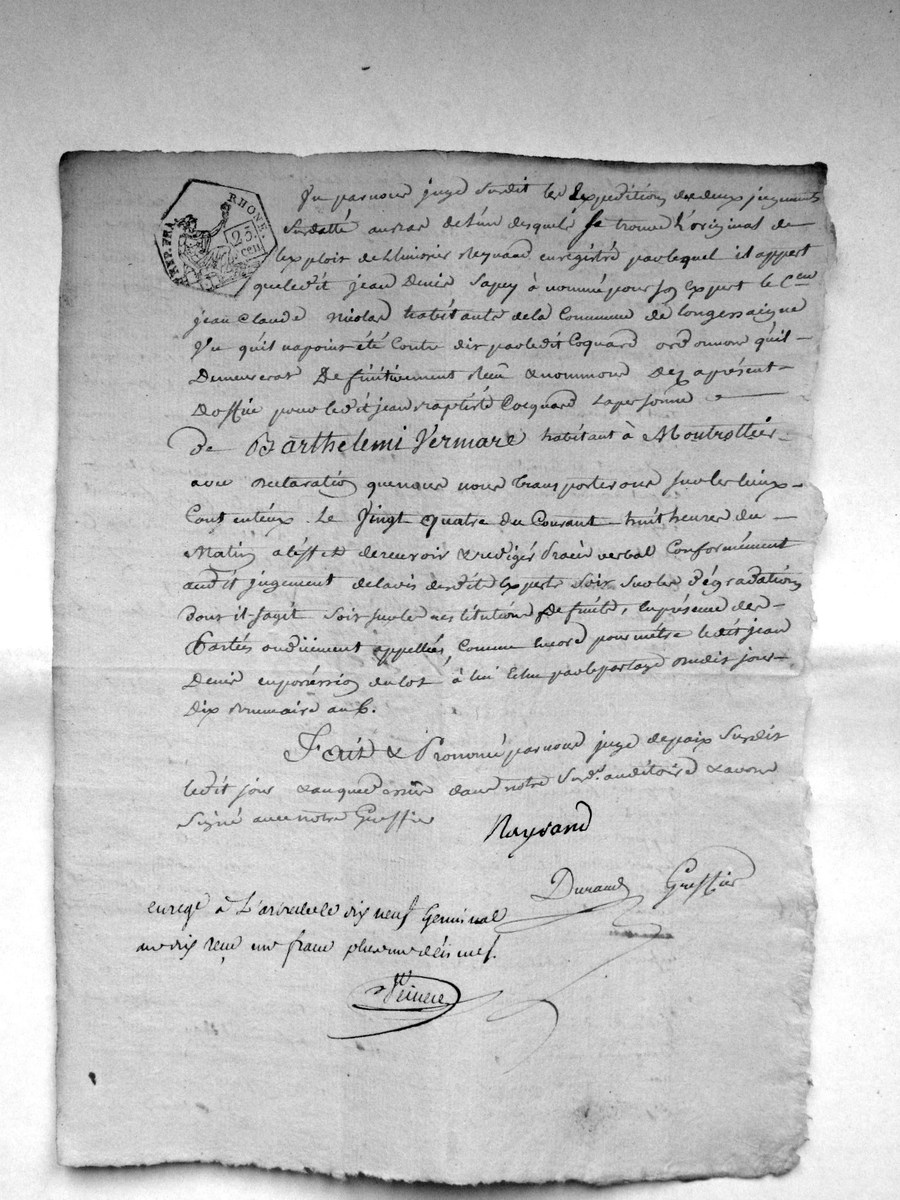 RÉP. FRA.
RHONE.
25 cen
Vu par nous juge susdit les Expeditions des deux jugements
Susdatté au bas de l'un desquels se trouve l'original de
l'exploit de Reynard enregistré par lequel il appert
que ledit jean Denis Sapey à nommé pour son Expert le Cen
jean Claude Nicolas habitants de la Commune de Longessaigne
Vu qu'il n'a point été Contre dit par ledit Coquard ordonnons qu'il
Demeurerat Definitivement Recu & nommons Dez aprésent
Doffice pour ledit jean Baptiste Cocquard la personne
de Barthelemi Vermare habitant à Montrottier
avec Declaration que nous nous transporterons sur les lieux
Contentieux. Le Vingt quatre du Courant huit heures du
Matin a l'effet de recevoir & redigés Procès verbal Conformément
audit jugement de l'avis desdits Experts soit sur les dégradations
dont il sagit soit sur les restitutions De fruits, en présence des
Parties ou duement appellées Comme encore pour métre ledit jean
Denis en possession du lot à lui échu par le partage dudit jour
Dix Brumaire an 6.
Fait & Prononcé par nous juge de paix Susdit
ledit jour & an que dessus dans notre Susdt auditoire & avons
Signé avec notre Greffier
Raynand
Durand Greffier
enregé à L'arbresle le dix neuf Germinal
an dix reçu un franc plus un décime.